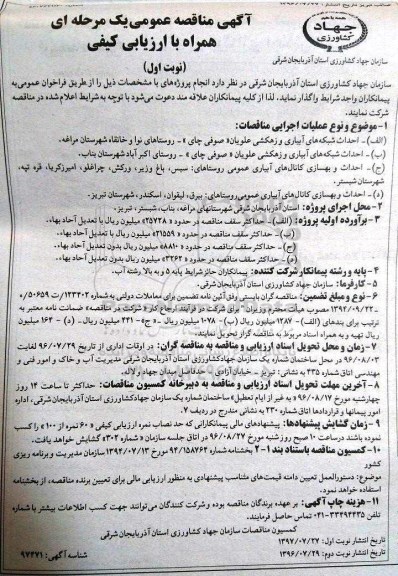 جهاد کشاورزی
آگهی مناقصه عمومی یک مرحله ای
همراه با ارزیابی کیفی
(نوبت اول)
سازمان جهاد کشاورزی استان آذربایجان شرقی
سازمان جهاد کشاورزی استان آذربایجان شرقی در نظر دارد انجام پروژه‌های با مشخصات ذیل را از طریق فراخوان عمومی به
پیمانکاران واجد شرایط واگذار نماید. لذا از کلیه پیمانکاران علاقه مند دعوت می‌شود با توجه به شرایط اعلام شده در مناقصه
شرکت نمایند.
۱- موضوع و نوع عملیات اجرایی مناقصات:
(الف)- احداث شبکه‌های آبیاری و زهکشی علویان« صوفی چای » - روستاهای نوا و خانقاه شهرستان مراغه.
(ب)- احداث شبکه‌های آبیاری و زهکشی علویان « صوفی چای » - روستای اکبر آباد شهرستان بناب.
(ج)- احداث و بهسازی کانال‌های آبیاری عمومی روستاهای: سیس، باغ وزیر، ورکش، چراغلو، امیرزکریا، قره تپه،
شهرستان شبستر.
(د)- احداث و بهسازی کانال‌های آبیاری عمومی روستاهای: بیرق، لیقوان، اسکندر، شهرستان تبریز.
۲- محل اجرای پروژه: استان آذربایجان شرقی شهرستانهای مراغه، بناب، شبستر، تبریز.
۳- برآورده اولیه پروژه: (الف)- حداکثر سقف مناقصه در حدود « ۲۵۷۲۸ » میلیون ریال با تعدیل آحاد بهاء.
(ب)- حداکثر سقف مناقصه در حدود « ۲۱۵۵۹ » میلیون ریال با تعدیل آحاد بهاء.
(ج)- حداکثر سقف مناقصه در حدود « ۸۸۱۰ » میلیون ریال بدون تعدیل آحاد بهاء.
(د)- حداکثر سقف مناقصه در حدود « ۳۲۶۲ » میلیون ریال بدون تعدیل آحاد بهاء.
۴- پایه و رشته پیمانکار شرکت کننده: پیمانکاران حائز شرایط پایه ۵ و به بالا رشته آب.
۵- کارفرما: سازمان جهاد کشاورزی استان آذربایجان شرقی.
۶- نوع و مبلغ تضمین: مناقصه گران بایستی وفق آئین نامه تضمین برای معاملات دولتی به شماره ۱۲۳۴۰۲/ت ۵۰۶۵۹/ه
۱۳۹۴/۰۹/۲۲ مصوب هیأت محترم وزیران" برای شرکت در فرآیند ارجاع کار « شرکت در مناقصه» ضمانت نامه معتبر به
ترتیب برای بندهای (الف)- ۱۲۸۷ میلیون ریال (ب)- ۱۰۷۸ میلیون ریال- «ج» ۴۴۱ میلیون ریال- (د)- ۱۶۴ میلیون
ریال تهیه و به همراه اسناد مربوط به مناقصه گزار تحویل نمایند.
۷- زمان و محل تحویل اسناد ارزیابی و مناقصه به مناقصه گران: در اوقات اداری از تاریخ ۹۶/۰۷/۲۹ لغایت
۹۶/۰۸/۰۳ در محل ساختمان شماره یک سازمان جهادکشاورزی استان آذربایجان شرقی مدیریت آب و خاک و امور فنی و
مهندسی اتاق شماره ۴۳۵ به نشانی: تبریز - خیابان آزادی - حدفاصل میدان جهاد و لاله.
۸- آخرین مهلت تحویل اسناد ارزیابی و مناقصه به دبیرخانه کمسیون مناقصات: حداکثر تا ساعت ۱۴ روز
چهارشنبه مورخ ۹۶/۰۸/۱۷ « به غیر از ایام تعطیل» ساختمان شماره یک سازمان جهاد کشاورزی استان آذربایجان شرقی، اداره
امور پیمانها و قراردادها اتاق شماره ۲۳۰ به نشانی مندرج در ردیف ۷.
۹- زمان گشایش پیشنهادها: پیشنهادهای مالی پیمانکارانی که حد نصاب نمره ارزیابی کیفی « ۶۰ نمره از ۱۰۰» را کسب
نموده باشند درساعت ۱۰ صبح روز شنبه مورخ ۹۶/۰۸/۲۷ در اتاق جلسه سازمان « شماره ۳۰۲» گشایش خواهد یافت.
۱۰- کمسیون مناقصه باستناد بند ۱-۲ بخشنامه شماره ۹۴/۱۵۸۷۶۴ مورخ ۱۳۹۴/۰۷/۱۳ سازمان مدیریت و برنامه ریزی
کشور
موضوع: دستورالعمل تعیین دامنه قیمت‌های متناسب پیشنهادی به منظور ارزیابی مالی برای تعیین برنده مناقصه، از بخشنامه
استفاده خواهد نمود.
۱۱- هزینه چاپ آگهی: بر عهده برندگان مناقصه بوده و شرکت کنندگان می‌توانند جهت کسب اطلاعات بیشتر با شماره
تلفن ۳۳۴۹۴۴۳۵-۰۴۱ تماس حاصل فرمایند.
کمسیون مناقصات سازمان جهاد کشاورزی استان آذربایجان شرقی
تاریخ انتشار نوبت اول: ۱۳۹۷/۰۷/۲۷
تاریخ انتشار نوبت دوم: ۱۳۹۶/۰۷/۲۹
شناسه آگهی: ۹۷۴۷۱